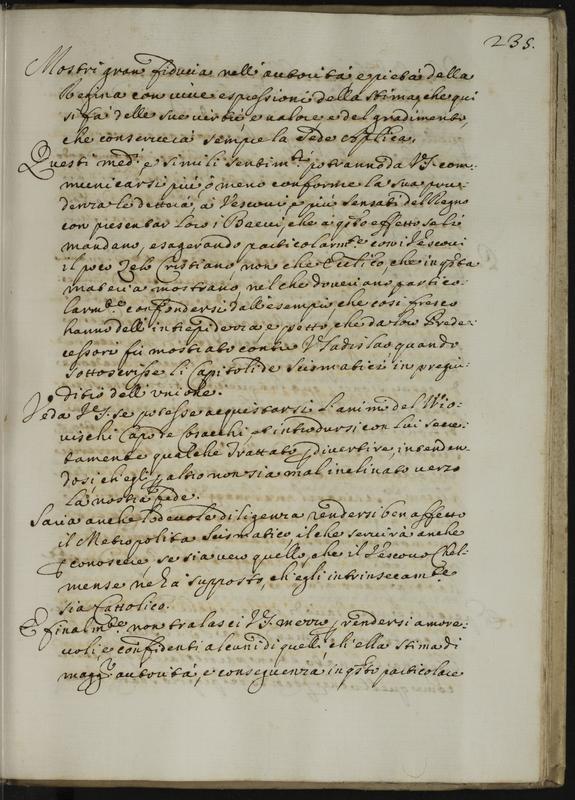 235.
Mostri gran fiducia nell' autorità e pietà della
Regina con vive espressioni della stima, che qui
si fà delle sue virtù, e valore e del gradimento,
che conserverà sempre la Sede Aplica.
Questi med.i e simili sentim.ti potranno da V.S. com-
municarsi più ò meno conforme la sua pru-
denza le dettarà, à Vescovi e più sensati del Regno
con presentar loro i Brevi, che à q.sto effetto se li
mandano, esagerando particolarm.te con i Vescovi
il poco Zelo Cristiano non che Eccl.ico, che in q.sta
materia mostrano, nel che doveriano partico-
larm.te confondersi dall' esempio, che così fresco
hanno dell' intrepidezza e petto, che da loro Prede-
cessori fù mostrato contro Vladislao quando
sottoscrisse li Capitoli de Scismatici in pregiu-
ditio dell' unione.
Veda V.S. se potesse acquistarsi l'animo del Wio-
vischi Capo de Cosacchi, et introdursi con lui secre-
tamente qualche Trattato p divertire, intenden-
dosi, ch' egli p altro non sia mal inclinato verso
la nostra fede.
Saria anche lodevole diligenza rendersi ben affetto
il Metropolita Scismatico, il che servirà anche
p conoscere se sia vero quello, che il Vescovo Chel-
mense ne hà supposto, ch' egli intrinsecam.te
sia Cattolico.
E finalm.te non tralasci V.S. rendersi amore-
voli, e confidenti alcuni di quelli, ch' ella stima di
magg.r autorità, e conseguenza in q.sto particolare